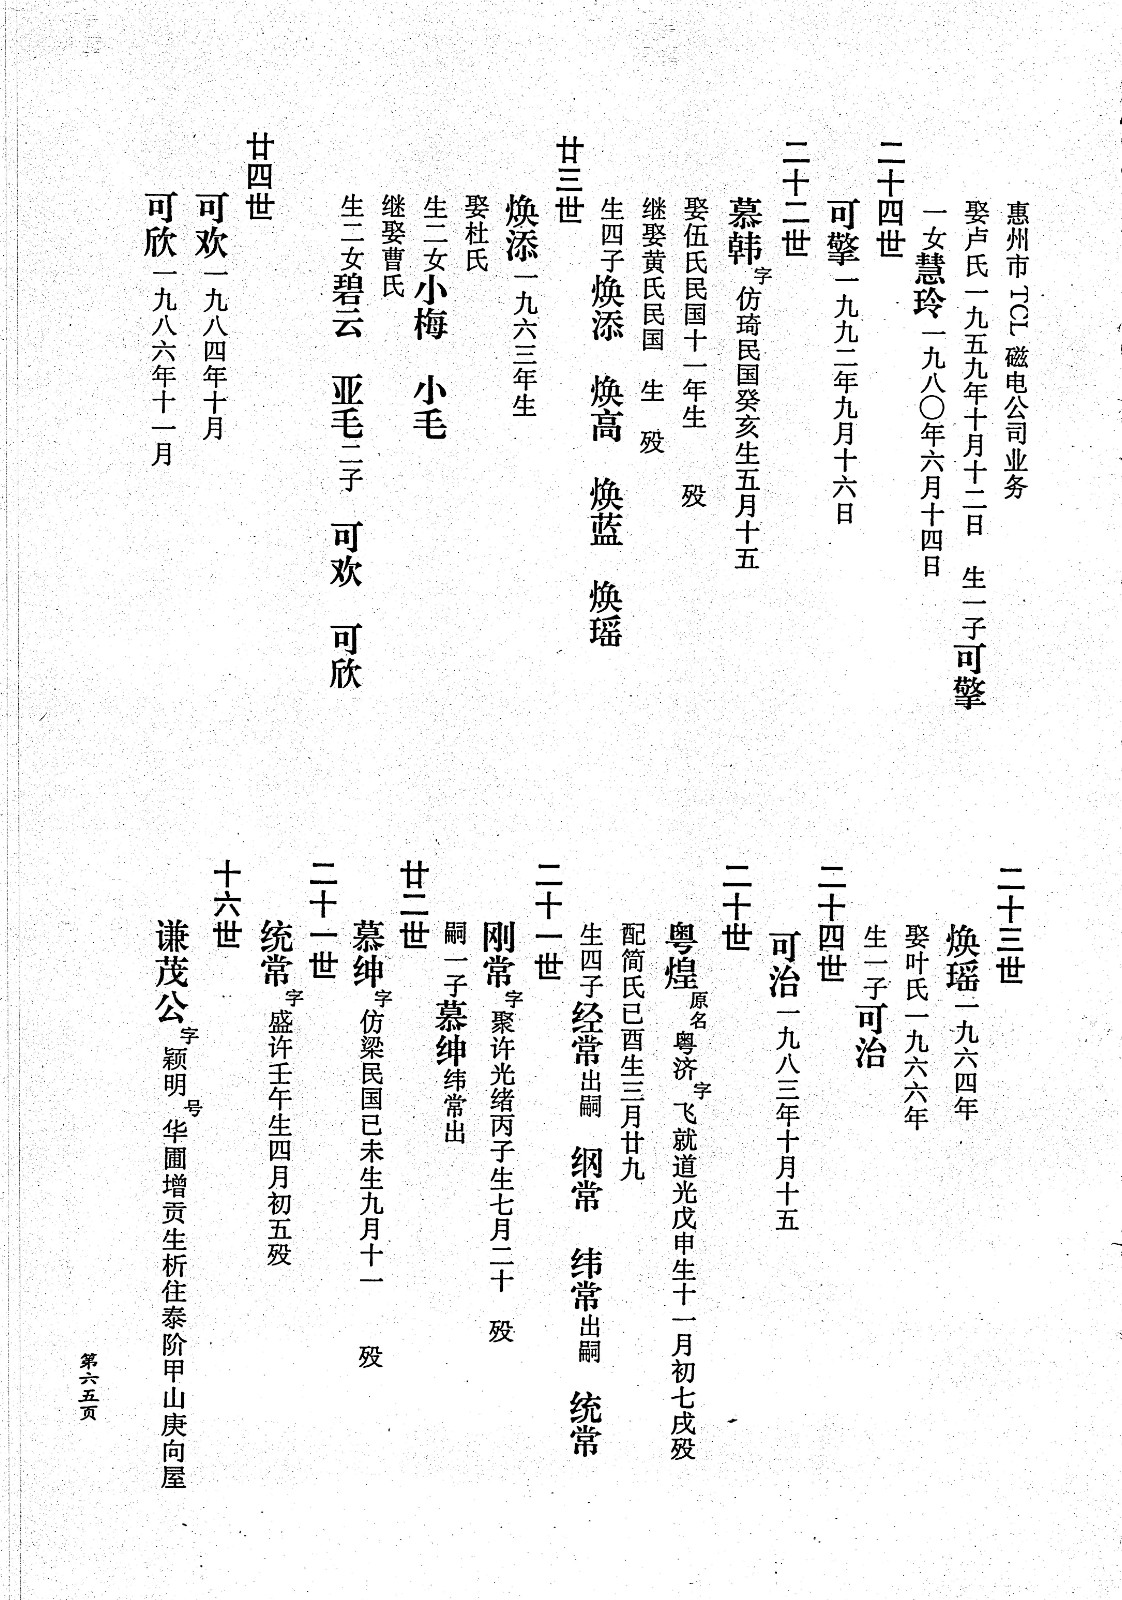 惠州市 TCL 磁电公司业务
娶卢氏一九五九年十月十二日 生一子可擎
一女慧玲一九八〇年六月十四日
二十四世
可擎一九九二年九月十六日
二十二世
慕韩字仿琦民国癸亥生五月十五
娶伍氏民国十一年生 殁
继娶黄氏民国 生 殁
生四子焕添 焕高 焕蓝 焕瑶
廿三世
焕添一九六三年生
娶杜氏
生二女小梅 小毛
继娶曹氏
生二女碧云 亚毛二子 可欢 可欣
廿四世
可欢一九八四年十月
可欣一九八六年十一月
二十三世
焕瑶一九六四年
娶叶氏一九六六年
生一子可治
二十四世
可治一九八三年十月十五
二十世
粤煌原名粤济字飞就道光戊申生十一月初七戌殁
配简氏已酉生三月廿九
生四子经常出嗣 纲常 纬常出嗣 统常
二十一世
刚常字聚许光绪丙子生七月二十 殁
嗣一子慕绅纬常出
廿二世
慕绅字仿梁民国已未生九月十一 殁
二十一世
统常字盛许壬午生四月初五殁
十六世
谦茂公字颖明号华圃增贡生析住泰阶甲山庚向屋
第六五页